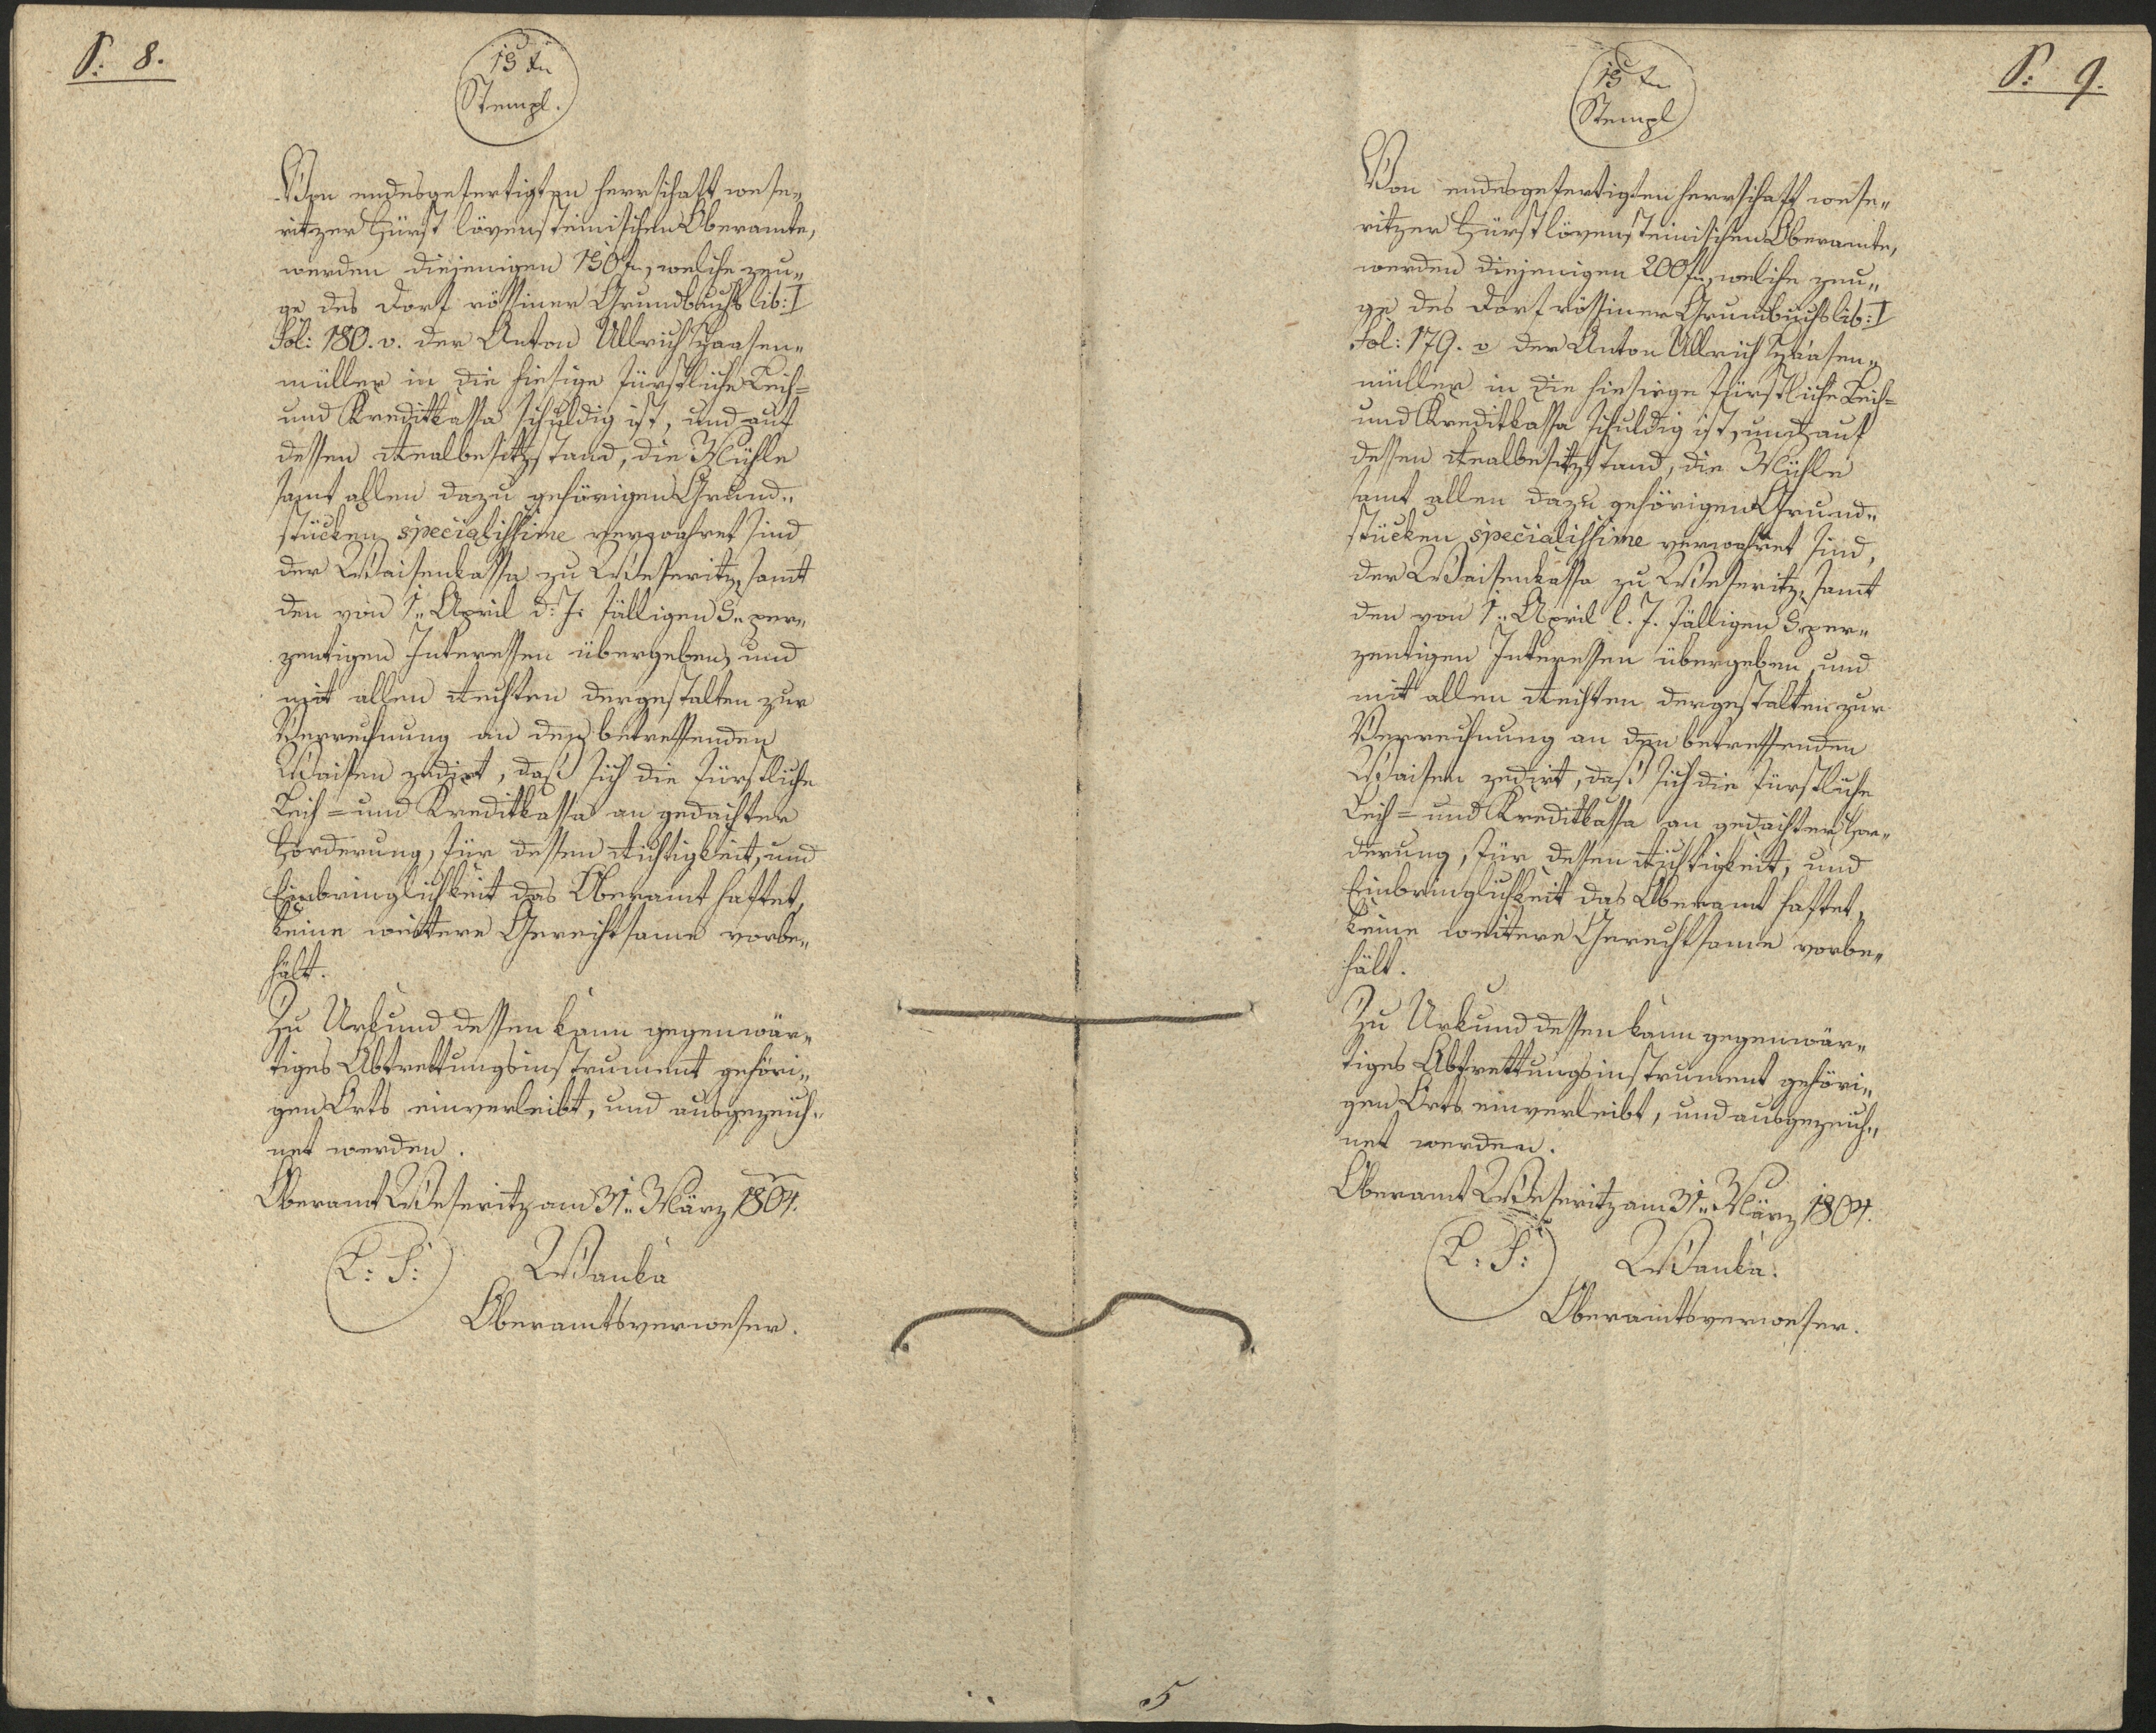 S: 8.
15 Xr
Stempl.
Von endesgefertigten herrschaft wese„
ritzer Fürst löwensteinischen Oberamte,
werden diejenigen 150 f., welche zeu„
ge des Dorf rössiner Grundbuchs lib: I
Fol: 180. v. der Anton Ullrich Haasen„
müller in die hiesige fürstliche Leih=
und Kreditkassa schuldig ist, und auf
dessen Realbesitzstand, die Mühle
samt allen dazu gehörigen Grund„
stücken specialissime verwahret sind
der Waisenkassa zu Weseritz, samt
den von 1„ April d: J: fälligen 5„ per„
zentigen Interessen übergeben, und
mit allen Rechten dergestalten zur
Verrechnung an den betreffenden
Waisen zedirt, daß sich die fürstliche
Leih= und Kreditkassa an gedachter
Forderung, für dessen Richtigkeit, und
Einbringlichkeit das Oberamt haftet,
keine weittere Gerechtsame vorbe„
hält.
Zu Urkund dessen kann gegenwär„
tiges Abtrettungsinstrument gehöri„
gen Orts einverleibt, und ausgezeich„
net werden.
Oberamt Weseritz am 31„ März 1804.
L: S: Wanka
Oberamtsverweser.
S: 9.
15 Xr
Stempl
Von endesgefertigten herrschaft wese„
ritzer Fürst löwensteinischen Oberamte,
werden diejenigen 200 f., welche zeu„
ge des Dorf rössiner Grundbuchs lib: I
Fol: 179. v der Anton Ullrich Haasen„
müller in die hiesige fürstliche Leih=
und Kreditkassa schuldig ist, und auf
dessen Realbesitzstand, die Mühle
samt allen dazu gehörigen Grund„
stücken specialissime verwahret sind,
der Waisenkassa zu Weseritz, samt
den von 1„ April l. J. fälligen 5„ per„
zentigen Interessen übergeben, und
mit allen Rechten dergestalten zur
Verrechnung an den betreffenden
Waisen zedirt, daß sich die fürstliche
Leih= und Kreditkassa an gedachter For„
derung, für dessen Richtigkeit, und
Einbringlichkeit das Oberamt haftet,
keine weittere Gerechtsame vorbe„
hält.
Zu Urkund dessen kann gegenwär„
tiges Abtrettungsinstrument gehöri„
gen Orts einverleibt, und ausgezeich„
net werden.
Oberamt Weseritz am 31„ März 1804.
L: S: Wanka.
Oberamtsverweser.
5